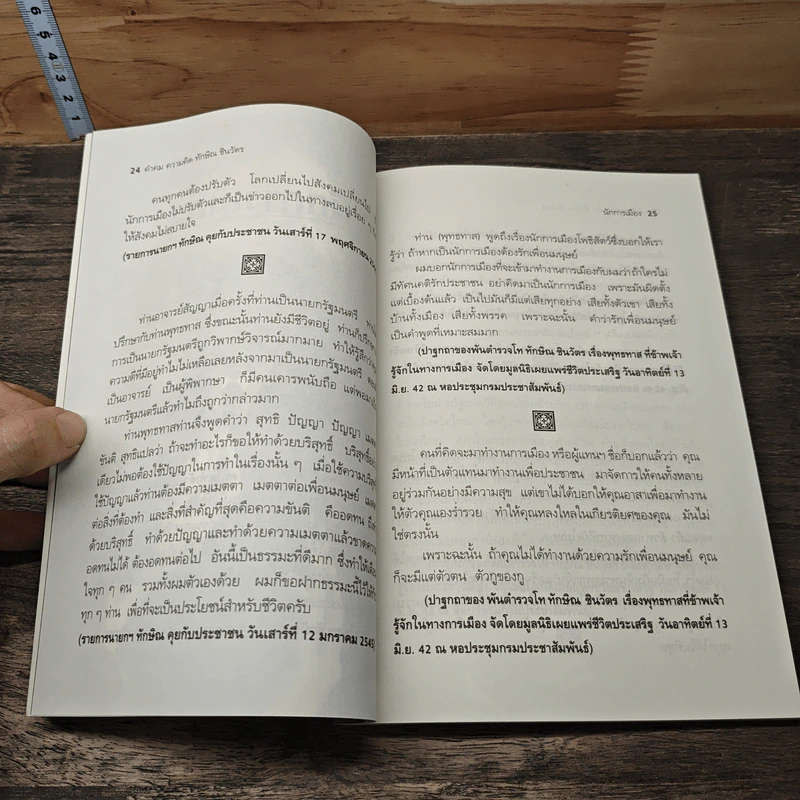 6 5 4 3 2 1
24 คำคม ความคิด ทักษิณ ชินวัตร
คนทุกคนต้องปรับตัว โลกเปลี่ยนไปสังคมเปลี่ยนไป
นักการเมืองไม่ปรับตัวและก็เป็นข่าวออกไปในทางลบอยู่เรื่อย ๆ
ให้สังคมไม่สบายใจ
(รายการนายกฯ ทักษิณ คุยกับประชาชน วันเสาร์ที่ 17 พฤศจิกายน
ท่านอาจารย์สัญญาเมื่อครั้งที่ท่านเป็นนายกรัฐมนตรี
ปรึกษากับท่านพุทธทาส ซึ่งขณะนั้นท่านยังมีชีวิตอยู่ ท่านก็ปรึก
การเป็นนายกรัฐมนตรีถูกวิพากษ์วิจารณ์มากมาย ทำให้รู้สึกว่า
ความดีที่มีอยู่ทำไมไม่เหลือเลยหลังจากมาเป็นนายกรัฐมนตรี
เป็นอาจารย์ เป็นผู้พิพากษา ก็มีคนเคารพนับถือ แต่พอมา
นายกรัฐมนตรีแล้วทำไมถึงถูกว่ากล่าวมาก
ท่านพุทธทาสท่านจึงพูดคำว่า สุทธิ ปัญญา ปัญญา เมต
ขันติ สุทธิแปลว่า ถ้าจะทำอะไรก็ขอให้ทำด้วยบริสุทธิ์ บริสุทธิ์
เดียวไม่พอต้องใช้ปัญญาในการทำในเรื่องนั้น ๆ เมื่อใช้ความบริสุ
ใช้ปัญญาแล้วท่านต้องมีความเมตตา เมตตาต่อเพื่อนมนุษย์ เมต
ต่อสิ่งที่ต้องทำ และสิ่งที่สำคัญที่สุดคือความขันติ คืออดทน ถึง
ด้วยบริสุทธิ์ ทำด้วยปัญญาและทำด้วยความเมตตาแล้วขาดความ
อดทนไม่ได้ ต้องอดทนต่อไป อันนี้เป็นธรรมะที่ดีมาก ซึ่งทำให้
ใจทุก ๆ คน รวมทั้งผมตัวเองด้วย ผมก็ขอฝากธรรมะนี้ไว้ให้
ทุก ๆ ท่าน เพื่อที่จะเป็นประโยชน์สำหรับชีวิตครับ
(รายการนายกฯ ทักษิณ คุยกับประชาชน วันเสาร์ที่ 12 มกราคม 2545)
นักการเมือง 25
ท่าน (พุทธทาส) พูดถึงเรื่องนักการเมืองโพธิสัตว์ซึ่งบอกให้เรา
รู้ว่า ถ้าหากเป็นนักการเมืองต้องรักเพื่อนมนุษย์
ผมบอกนักการเมืองที่จะเข้ามาทำงานการเมืองกับผมว่าถ้าใครไม่
มีทัศนคติรักประชาชน อย่าคิดมาเป็นนักการเมือง เพราะมันผิดตั้ง
แต่เบื้องต้นแล้ว เป็นไปมันก็มีแต่เสียทุกอย่าง เสียทั้งตัวเขา เสียทั้ง
บ้านทั้งเมือง เสียทั้งพรรค เพราะฉะนั้น คำว่ารักเพื่อนมนุษย์
เป็นคำพูดที่เหมาะสมมาก
(ปาฐกถาของพันตำรวจโท ทักษิณ ชินวัตร เรื่องพุทธทาส ที่ข้าพเจ้า
รู้จักในทางการเมือง จัดโดยมูลนิธิเผยแพร่ชีวิตประเสริฐ วันอาทิตย์ที่ 13
มิ.ย. 42 ณ หอประชุมกรมประชาสัมพันธ์)
คนที่คิดจะมาทำงานการเมือง หรือผู้แทนฯ ชื่อก็บอกแล้วว่า คุณ
มีหน้าที่เป็นตัวแทนมาทำงานเพื่อประชาชน มาจัดการให้คนทั้งหลาย
อยู่ร่วมกันอย่างมีความสุข แต่เขาไม่ได้บอกให้คุณอาสาเพื่อมาทำงาน
ให้ตัวคุณเองร่ำรวย ทำให้คุณหลงใหลในเกียรติยศของคุณ มันไม่
ใช่ตรงนั้น
เพราะฉะนั้น ถ้าคุณไม่ได้ทำงานด้วยความรักเพื่อนมนุษย์ คุณ
ก็จะมีแต่ตัวตน ตัวกูของกู
(ปาฐกถาของ พันตำรวจโท ทักษิณ ชินวัตร เรื่องพุทธทาสที่ข้าพเจ้า
รู้จักในทางการเมือง จัดโดยมูลนิธิเผยแพร่ชีวิตประเสริฐ วันอาทิตย์ที่ 13
มิ.ย. 42 ณ หอประชุมกรมประชาสัมพันธ์)